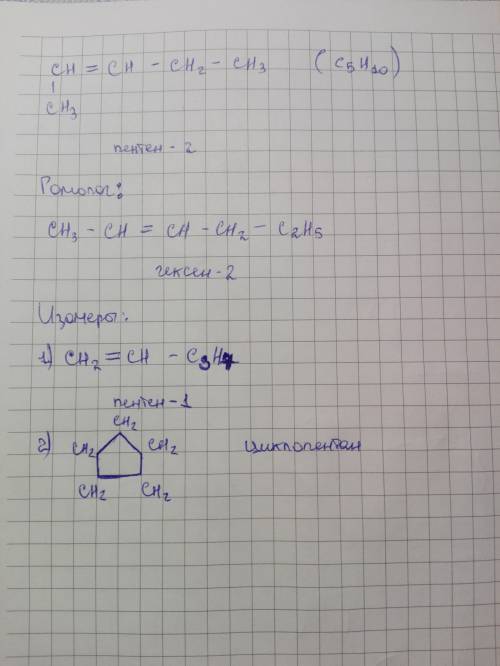 CH = CH - CH₂ - CH₃ (C₅H₁₀)
CH₃
пентен-2
Гомолог:
CH₃ - CH = CH - CH₂ - C₂H₅
гексен-2
Изомеры:
1) CH₂ = CH - C₃H₇
пентен-1
CH₂
2) CH₂ CH₂ циклопентан
CH₂ CH₂